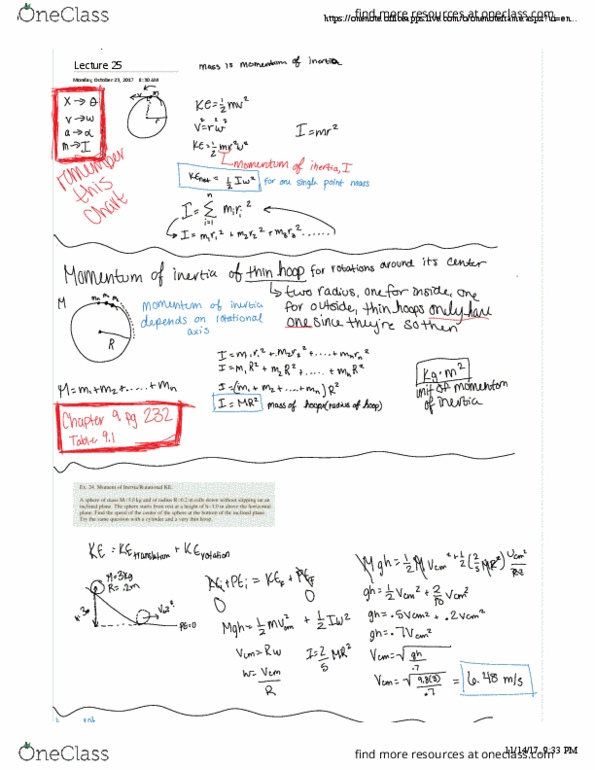 OneClass
find more resources at oneclass.com
Lecture 25
Monday, October 23, 2017 8:30 AM
mass is momentum of inertia
X → θ
V → w
a → α
m → I
remember
this
chart
KE = 1/2 mv²
v² = r²w²
KE = 1/2 mr²w²
I = mr²
momentum of inertia, I
KE = 1/2 Iw² for one single point mass
I = Σ mᵢrᵢ²
n
i=1
I = m₁r₁² + m₂r₂² + m₃r₃² ......
Momentum of inertia of thin hoop for rotations around its center
two radius, one for inside, one
for outside, thin hoops only have
one since they're so then
M
R
momentum of inertia
depends on rotational
axis
I = m₁r₁² + m₂r₂² + ..... + mₙrₙ²
I = m₁R² + m₂R² + ..... + mₙR²
I = (m₁ + m₂ + ... + mₙ) R²
I = MR² mass of hoops(radius of hoop)
M = m₁ + m₂ + ..... + mₙ
kg·m²
unit of momentum
of inertia
Chapter 9 pg 232
Table 9.1
Ex. 24: Moment of Inertia/Rotational KE.
A sphere of mass M=3.0 kg and of radius R=0.2 m rolls down without slipping on an
inclined plane. The sphere starts from rest at a height of h=3.0 m above the horizontal
plane. Find the speed of the center of the sphere at the bottom of the inclined plane.
Try the same question with a cylinder and a very thin hoop.
KE = KE translation + KE rotation
M=3kg
R=.2m
PE=0
KEᵢ + PEᵢ = KE_F + PE_F
0
0
Mgh = 1/2 mv²cm + 1/2 Iw²
Vcm = Rw
w = Vcm/R
I = 2/5 MR²
Mgh = 1/2 M Vcm² + 1/2 (2/5 MR²) Vcm²/R²
gh = 1/2 Vcm² + 2/10 Vcm²
gh = .5Vcm² + .2Vcm²
gh = .7Vcm²
Vcm = √gh/.7
Vcm = √9.8(3)/.7 = 6.48 m/s
OneClass
11/14/17, 9:33 PM
find more resources at oneclass.com